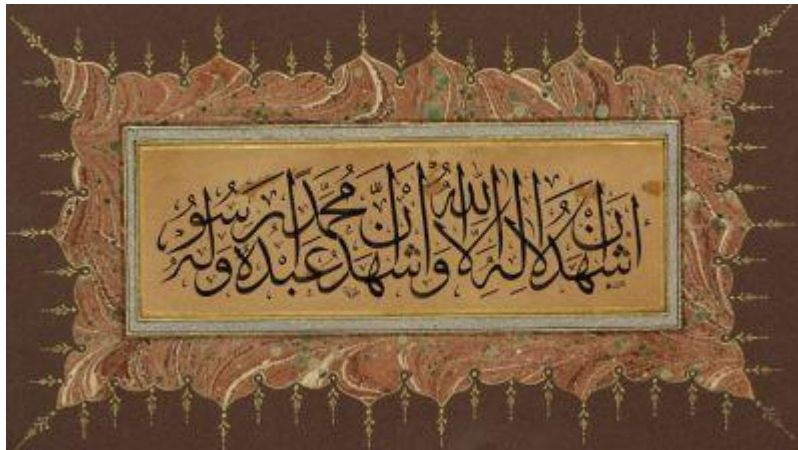 أشهد ان لا اله الا الله واشهد ان محمدا عبده ورسوله